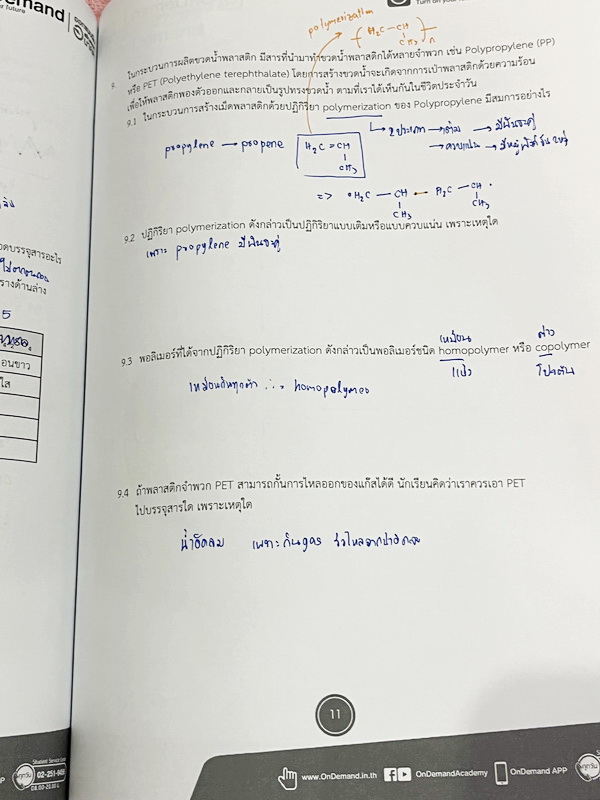 emand
r future
Turn on your
polymerization
( H₂C — CH )n
CH₃
9. ในกระบวนการผลิตขวดน้ำพลาสติก มีสารที่นำมาทำขวดน้ำพลาสติกได้หลายจำพวก เช่น Polypropylene (PP)
หรือ PET (Polyethylene terephthalate) โดยการสร้างขวดน้ำจะเกิดจากการเป่าพลาสติกด้วยความร้อน
เพื่อให้พลาสติกพองตัวออกและกลายเป็นรูปทรงขวดน้ำ ตามที่เราได้เห็นกันในชีวิตประจำวัน
9.1 ในกระบวนการสร้างเม็ดพลาสติกด้วยปฏิกิริยา polymerization ของ Polypropylene มีสมการอย่างไร
2 ประเภท → เติม → มีพันธะคู่
propylene → propene H₂C = CH
→ ควบแน่น →
CH₃
=> •H₂C — CH — H₂C — CH•
CH₃ CH₃
9.2 ปฏิกิริยา polymerization ดังกล่าวเป็นปฏิกิริยาแบบเติมหรือแบบควบแน่น เพราะเหตุใด
เพราะ propylene มีพันธะคู่
เหมือน ต่าง
9.3 พอลิเมอร์ที่ได้จากปฏิกิริยา polymerization ดังกล่าวเป็นพอลิเมอร์ชนิด homopolymer หรือ copolymer
แป้ง โปรตีน
เหมือนกันทุกตัว ∴ = homopolymer
9.4 ถ้าพลาสติกจำพวก PET สามารถกั้นการไหลออกของแก๊สได้ดี นักเรียนคิดว่าเราควรเอา PET
ไปบรรจุสารใด เพราะเหตุใด
น้ำอัดลม เพราะ กัน gas
วดบรรจุสารอะไร
รางด้านล่าง
5
อนขาว
ใส
11
Student Service Line
02-251-945
08.00-20.00 น.
www.OnDemand.in.th
OnDemandAcademy
OnDemand APP
ทุกวัน